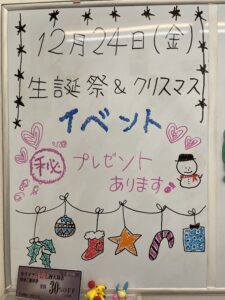 12月24日(金)
生誕祭&クリスマス
イベント
㊙ プレゼント
あります♪
30%OFF